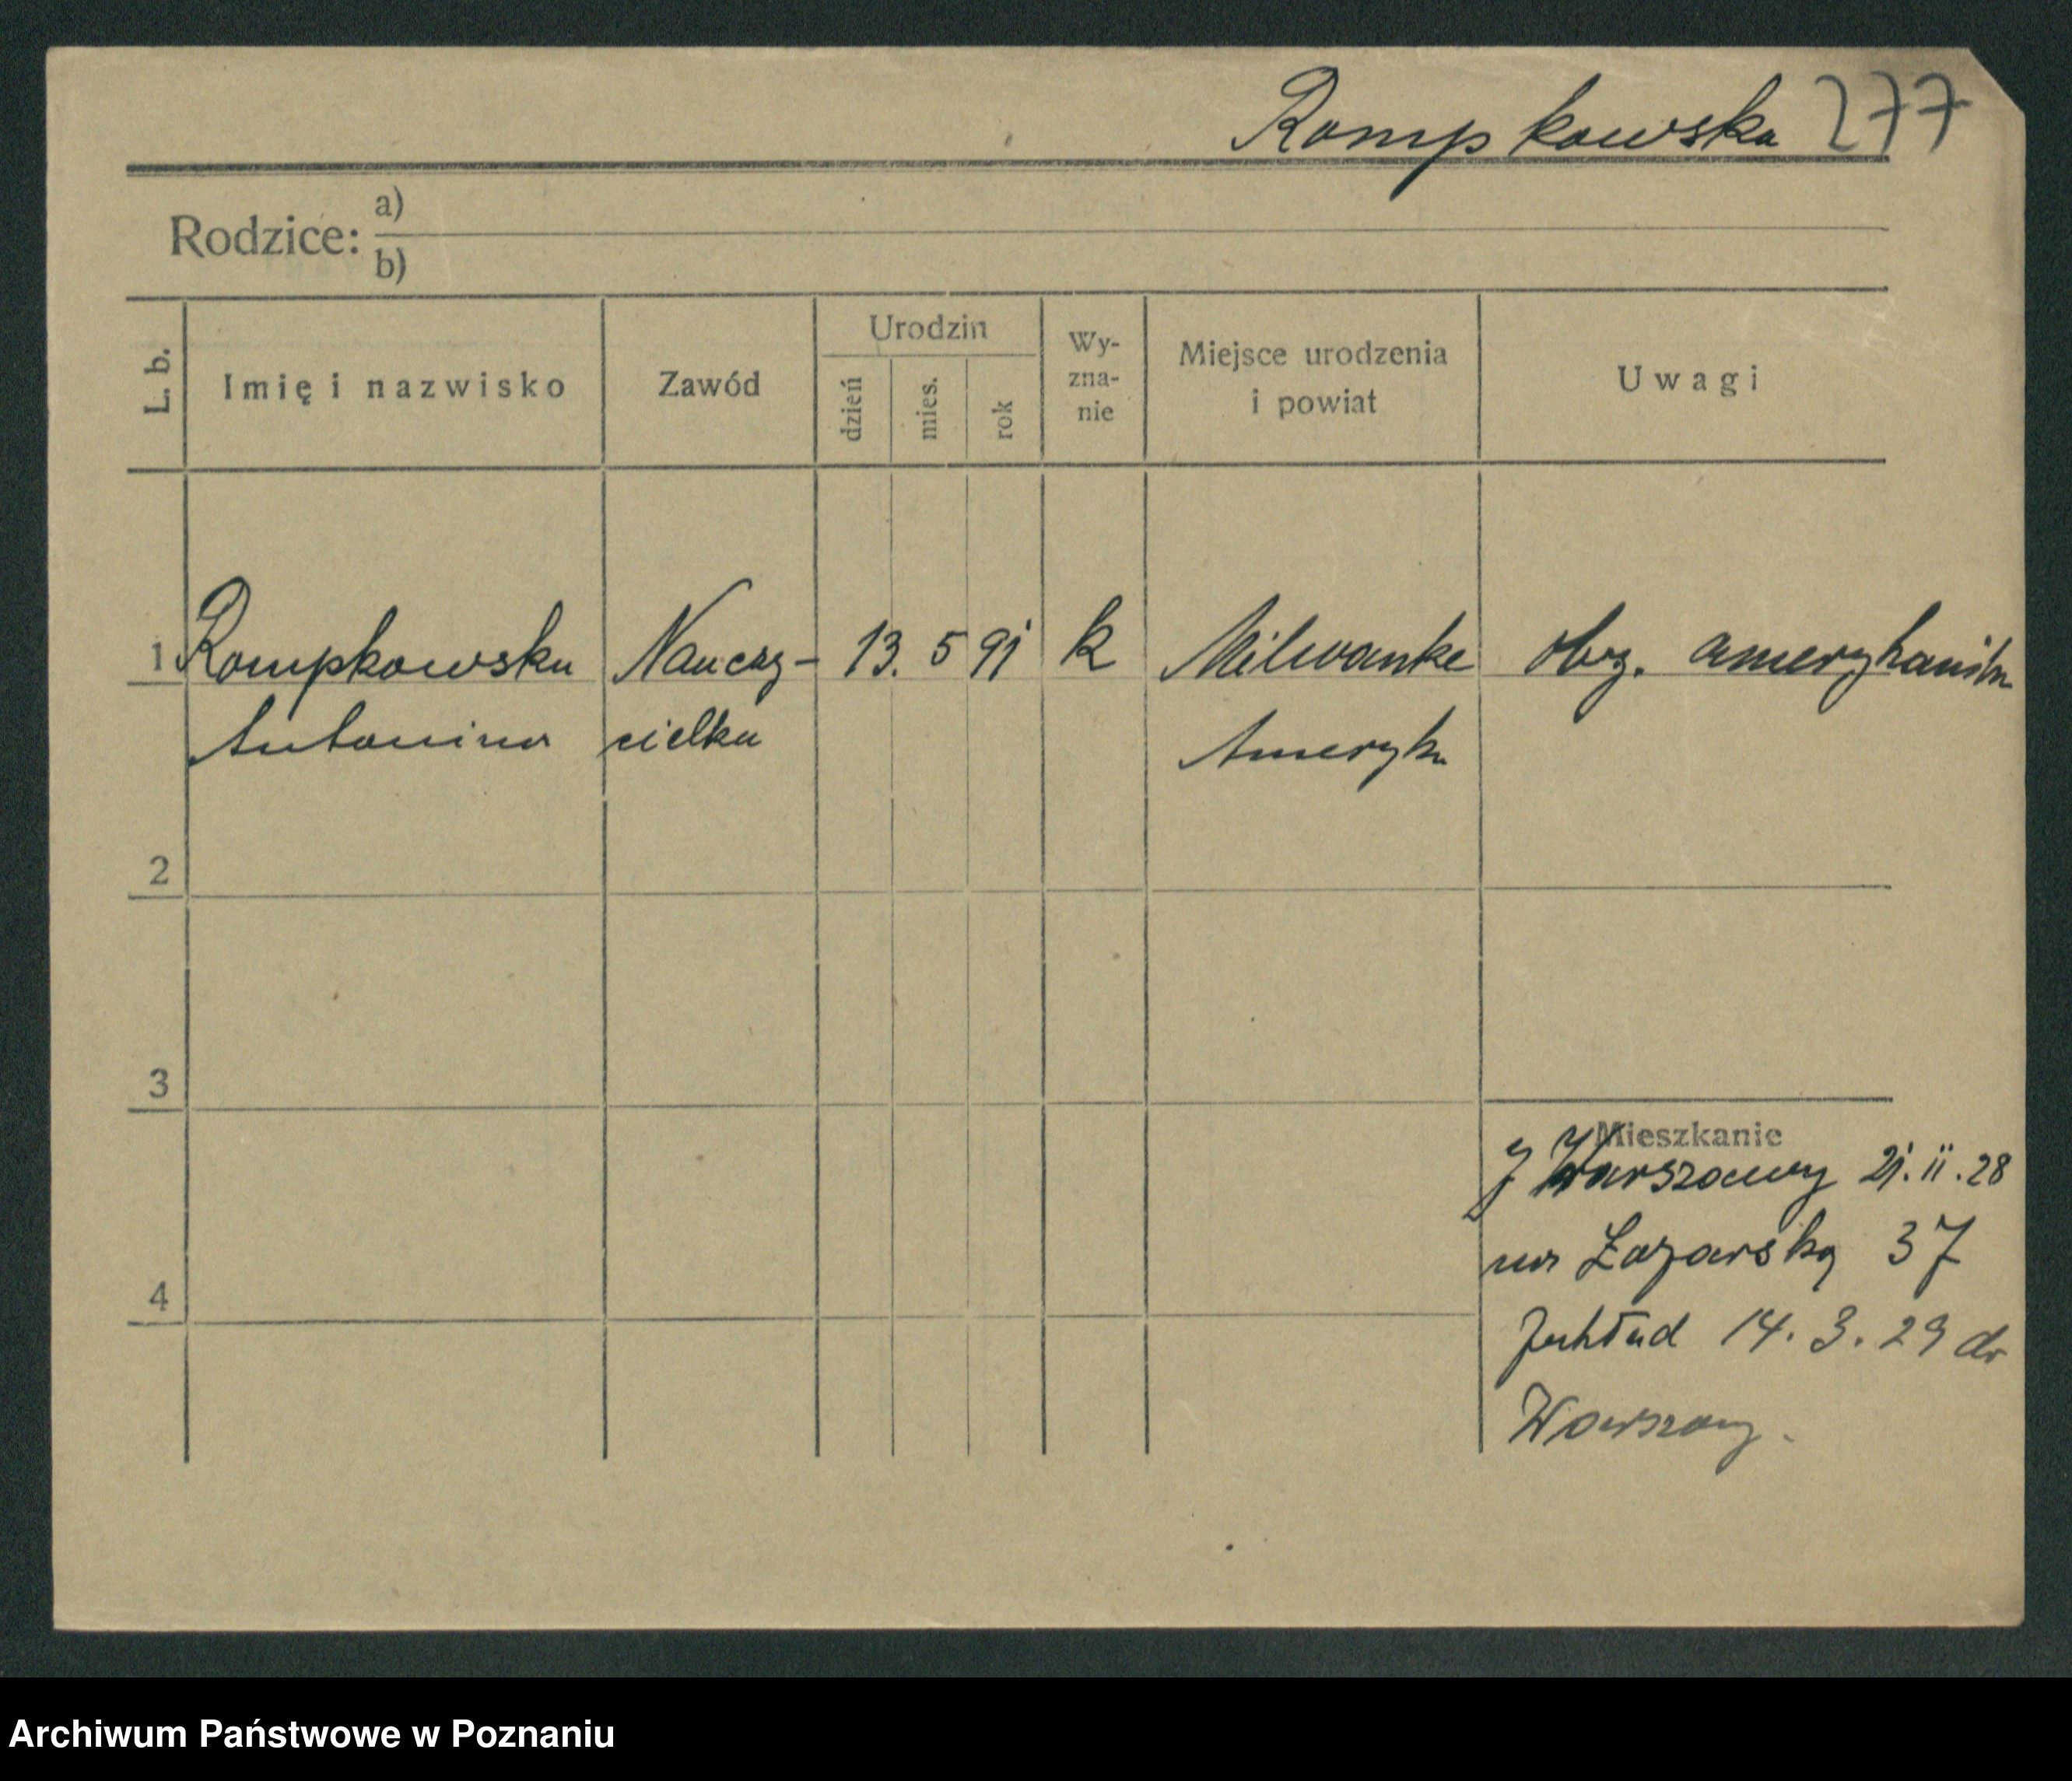 Rompkowska 277
Rodzice: a)
b)
L. b.
Imię i nazwisko
Zawód
Urodzin
dzień
mies.
rok
Wy-
zna-
nie
Miejsce urodzenia
i powiat
Uwagi
1 Rompkowska Nauczy- 13. 5 91 k Milwanke obyw. amerykańska
Antonina cielka Ameryka
2
3
Mieszkanie
Z Warszawy 21. II. 28
na Łazarską 37
4
14. 3. 29 do
Warszawy.
Archiwum Państwowe w Poznaniu